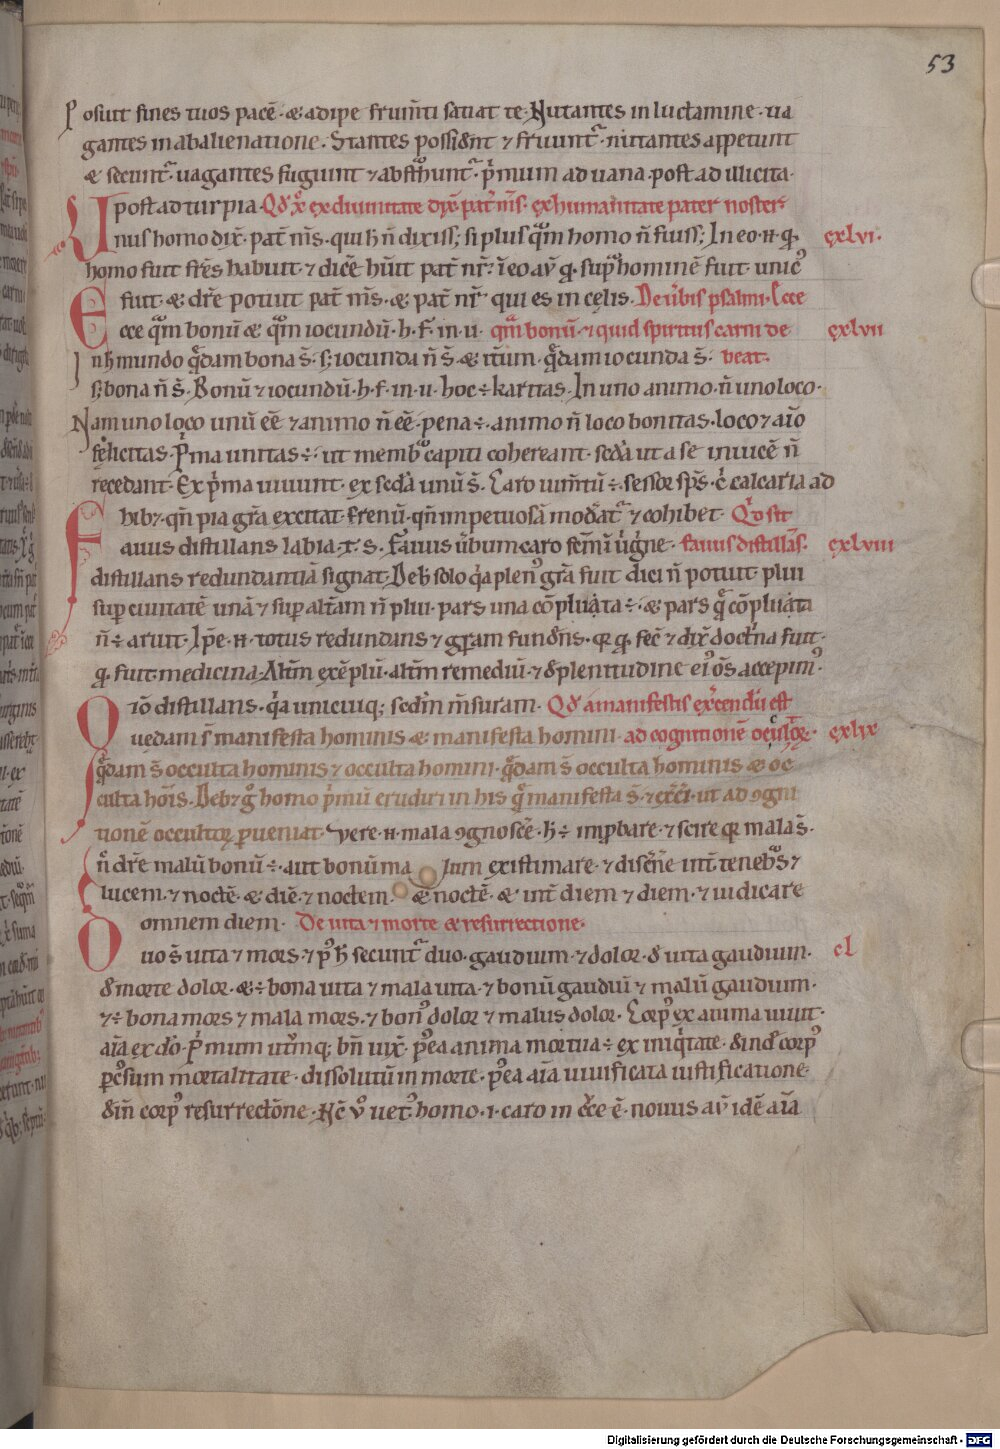 53
Posuit fines tuos pacē· & adipe frum̄ti satiat te· Nutantes in luctamine· ua
gantes in abalienatione· Stantes possidn̄t ⁊ fruunt᷑· nutantes appetunt
& secunt᷑· uagantes fugiunt ⁊ abstͦhunt᷑· p̓mum ad uana· post ad illicita·
post ad turpia· Qd̓ x̄ ex diuinitate dix̄ pat̓ m̄s· ex humanitate pater noster
Unus homo dix̄· pat̓ m̄s· qui h̄ n̄ dixiss; si plus qͣm homo n̄ fuiss; In eo· n̄· q· cxlvi·
homo fuit fr̄es habuit· ⁊ dicē hūit pat̓ nr̄· ī eo aū q· sup̓ hominē fuit· unicꝰ
fuit· & dr̄e potuit pat̓ m̄s· & pat̓ nr̄ qui es in celis· De ūbis psalmi· Ecce
Ecce qͣm bonū & qͣm iocundū· h· f· in· u· qͣm bonū· ⁊ quid spiritus carni de cxlvii
In h̄ mundo q̄dam bona s̄· s; iocunda n̄ s̄· & it̄um· q̄dam iocunda s̄· beat·
s; bona n̄ s̄· Bonū ⁊ iocundū· h· f· in· u· hoc ÷ karitas· In uno animo· n̄ uno loco·
Nam uno loco unū eē ⁊ animo n̄ eē· pena ÷· animo n̄ loco bonitas· loco ⁊ aīo
felicitas· P̓ma unitas ÷· ut membͦ capiti cohereant· sed̄a ut a se inuicē n̄
recedant· Ex p̓ma uiuunt· ex sed̄a unū s̄· Caro uim̄tū ÷· sessor sp̄s· c̄ calcaria ad
hibꝫ· qn̄ pia gr̄a excitat· frenū· qn̄ impetuosā modat᷑ ⁊ cohibet· Qͥd sit
Fauus distillans labia· t· s· Fauus ūbum caro sem̄ī uirgine· fauus distillās· cxlviii
distillans redundantiā signat· De h̄ solo qͥa plenꝰ gr̄a fuit dici n̄ potuit· plui
sup̓ ciuitatē unā ⁊ sup̓ alt̄am n̄ plui· pars una cōpluata ÷· & pars q̄ cōpluata
n̄ ÷ aruit· Ip̄e· n̄· totus redundans ⁊ gr̄am fundēs· qr q· fec̄ ⁊ dix̄ doct̓na fuit·
q· fuit· medicina· Alt̄m exēplū· alt̄m remediū· ⁊ d̓ plenitudine eiꝰ oēs accepimꝰ·
Ideo distillans· qͥa unicuiq; sedm̄ m̄suram· Qd̓ a manifestis ex̄cendū est
Quedam s̄ manifesta hominis & manifesta homini· ad cognitionē occultoꝝ· cxlix
q̄dam s̄ occulta hominis ⁊ occulta homini· q̄dam s̄ occulta hominis & oc
culta hōīs· Debꝫ gͦ homo p̓mū erudiri in his q̄ manifesta s̄· ⁊ ex̄ci· ut ad ꝯgni
tionē occultoꝝ ꝑueniat· Vere· n̄· mala ꝯgnoscē· h̄ ÷ improbare· ⁊ scire qr mala s̄·
n̄ dr̄e malū bonū ÷· aut bonū ma lum existimare· ⁊ discr̄ne int̄ tenebͣs ⁊
lucem· ⁊ noctē· & diē· ⁊ noctem· & noctē· & int̄ diem ⁊ diem· ⁊ iudicare
omnem diem· De uita ⁊ morte & resurrectione·
Duo s̄ uita ⁊ mors· ⁊ pꝰ h̄ secunt᷑ duo· gaudium· ⁊ dolor· d̓ uita gaudium· cl
d̓ morte dolor· & ÷ bona uita ⁊ mala uita· ⁊ bonū gaudiū ⁊ malū gaudium·
⁊ ÷ bona mors ⁊ mala mors· ⁊ bonꝰ dolor ⁊ malus dolor· Corpꝰ ex anima uiuit·
aīa ex dō· P̓mum utr̄mq; bn̄ uix̄· p̓ea anima mortua ÷ ex iniq̓tate· d̓ind̓ corpꝰ
ꝑcussum mortalitate· dissolutū in morte· p̓ea aīa uiuificata iustificatione
d̓in̄ corpꝰ resurrectōne· Nc̄ ū uetꝰ homo· i· caro in cr̄ce ē· nouus aū idē aīa
Digitalisierung gefördert durch die Deutsche Forschungsgemeinschaft - DFG